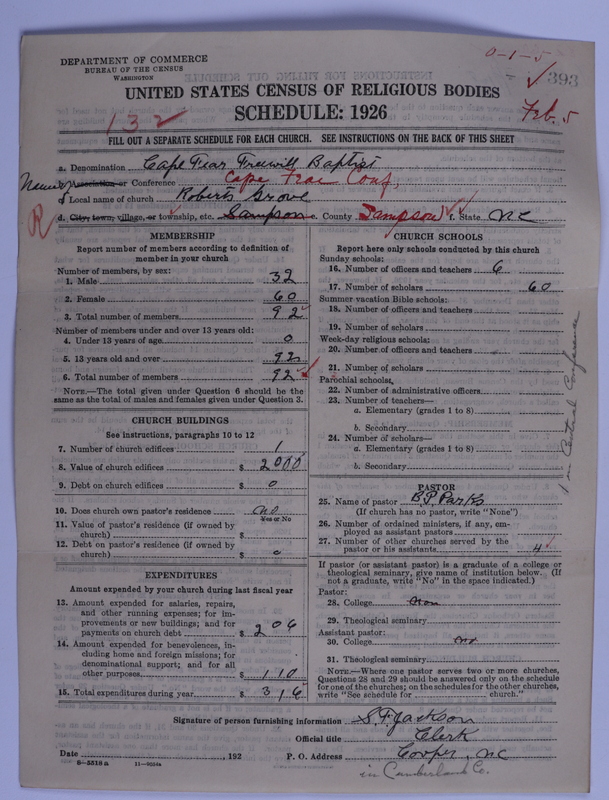 0-1-5
393
DEPARTMENT OF COMMERCE
BUREAU OF THE CENSUS
WASHINGTON
UNITED STATES CENSUS OF RELIGIOUS BODIES
SCHEDULE: 1926
132
Feb. 5
FILL OUT A SEPARATE SCHEDULE FOR EACH CHURCH. SEE INSTRUCTIONS ON THE BACK OF THIS SHEET
a. Denomination Cape Fear Freewill Baptist
Name of Association or Conference Cape Fear Conf,
Local name of church Roberts Grove
R d. City, town, village, or township, etc. Sampson e. County Sampson f. State NC
MEMBERSHIP
Report number of members according to definition of
member in your church
Number of members, by sex:
1. Male 32
2. Female 60
3. Total number of members 92
Number of members under and over 13 years old:
4. Under 13 years of age 0
5. 13 years old and over 92
6. Total number of members 92
NOTE.—The total given under Question 6 should be
same as the total of males and females given under Question 3.
CHURCH BUILDINGS
See instructions, paragraphs 10 to 12
7. Number of church edifices 1
8. Value of church edifices $ 2000
9. Debt on church edifices $ 0
10. Does church own pastor's residence no
Yes or No
11. Value of pastor's residence (if owned by
church) $
12. Debt on pastor's residence (if owned by
church) $ 0
EXPENDITURES
Amount expended by your church during last fiscal year
13. Amount expended for salaries, repairs,
and other running expenses; for im-
provements or new buildings; and for
payments on church debt $ 206
14. Amount expended for benevolences, in-
cluding home and foreign missions; for
denominational support; and for all
other purposes $ 110
15. Total expenditures during year $ 316
CHURCH SCHOOLS
Report here only schools conducted by this church
Sunday schools:
16. Number of officers and teachers 6
17. Number of scholars 60
Summer vacation Bible schools:
18. Number of officers and teachers
19. Number of scholars
Week-day religious schools:
20. Number of officers and teachers
21. Number of scholars
Parochial schools,
22. Number of administrative officers
23. Number of teachers—
a. Elementary (grades 1 to 8)
b. Secondary
24. Number of scholars—
a. Elementary (grades 1 to 8)
b. Secondary
1 in Central Conference
PASTOR
25. Name of pastor B.P. Parks
(If church has no pastor, write "None")
26. Number of ordained ministers, if any, em-
ployed as assistant pastors
27. Number of other churches served by the
pastor or his assistants 4
If pastor (or assistant pastor) is a graduate of a college or
theological seminary, give name of institution below. (If
not a graduate, write "No" in the space indicated.)
Pastor:
28. College
29. Theological seminary
Assistant pastor:
30. College
31. Theological seminary
NOTE.—Where one pastor serves two or more churches,
Questions 28 and 29 should be answered only on the schedule
for one of the churches; on the schedules for the other churches,
write "See schedule for church."
Signature of person furnishing information S. F. Jackson
Official title Clerk
Date , 192 P. O. Address Cooper, NC
8-5518 a 11-9034a
in Cumberland Co.